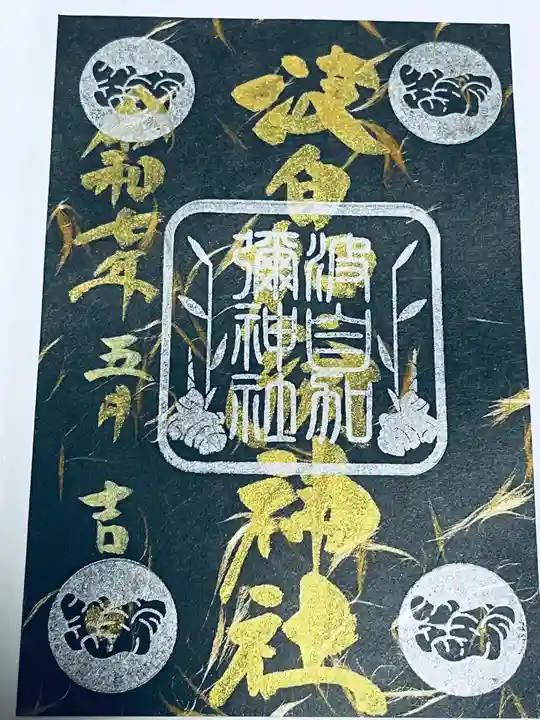 波自加彌神社
波自加
彌神社
令和七年 五月 吉